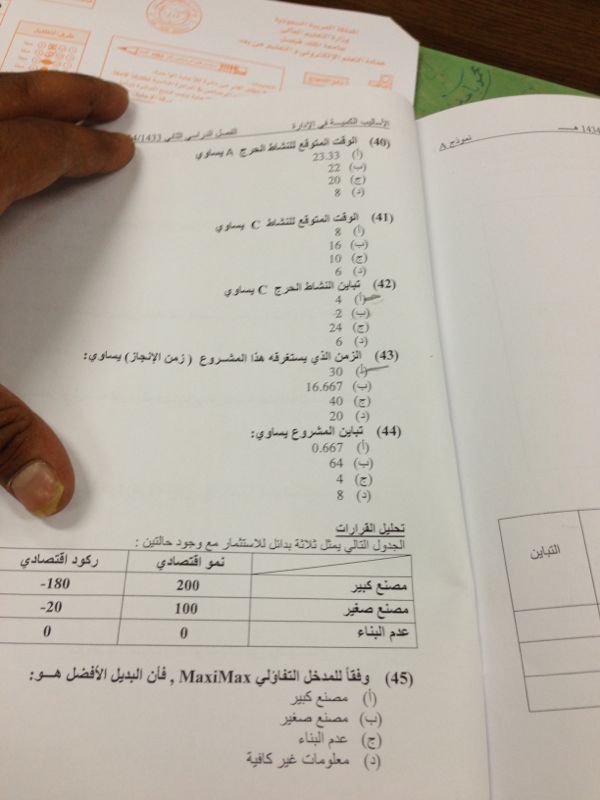 المملكة العربية السعودية
وزارة التعليم العالي
جامعة الملك فيصل
عمادة التعليم الإلكتروني و التعليم عن بعد
طريقة التظليل
الأساليب الكمية في الإدارة
الفصل الدراسي الثاني 1433/
1434 هـ
نموذج A
(40) الوقت المتوقع للنشاط الحرج A يساوي
(أ) 23.33
(ب) 22
(ج) 20
(د) 8
(41) الوقت المتوقع للنشاط C يساوي
(أ) 8
(ب) 16
(ج) 10
(د) 6
(42) تباين النشاط الحرج C يساوي
(أ) 4
(ب) 2
(ج) 24
(د) 6
(43) الزمن الذي يستغرقه هذا المشروع ( زمن الإنجاز) يساوي:
(أ) 30
(ب) 16.667
(ج) 40
(د) 20
(44) تباين المشروع يساوي:
(أ) 0.667
(ب) 64
(ج) 4
(د) 8
تحليل القرارات
الجدول التالي يمثل ثلاثة بدائل للاستثمار مع وجود حالتين :
نمو اقتصادي ركود اقتصادي
مصنع كبير 200 -180
مصنع صغير 100 -20
عدم البناء 0 0
(45) وفقاً للمدخل التفاؤلي MaxiMax , فأن البديل الأفضل هـو:
(أ) مصنع كبير
(ب) مصنع صغير
(ج) عدم البناء
(د) معلومات غير كافية
التباين